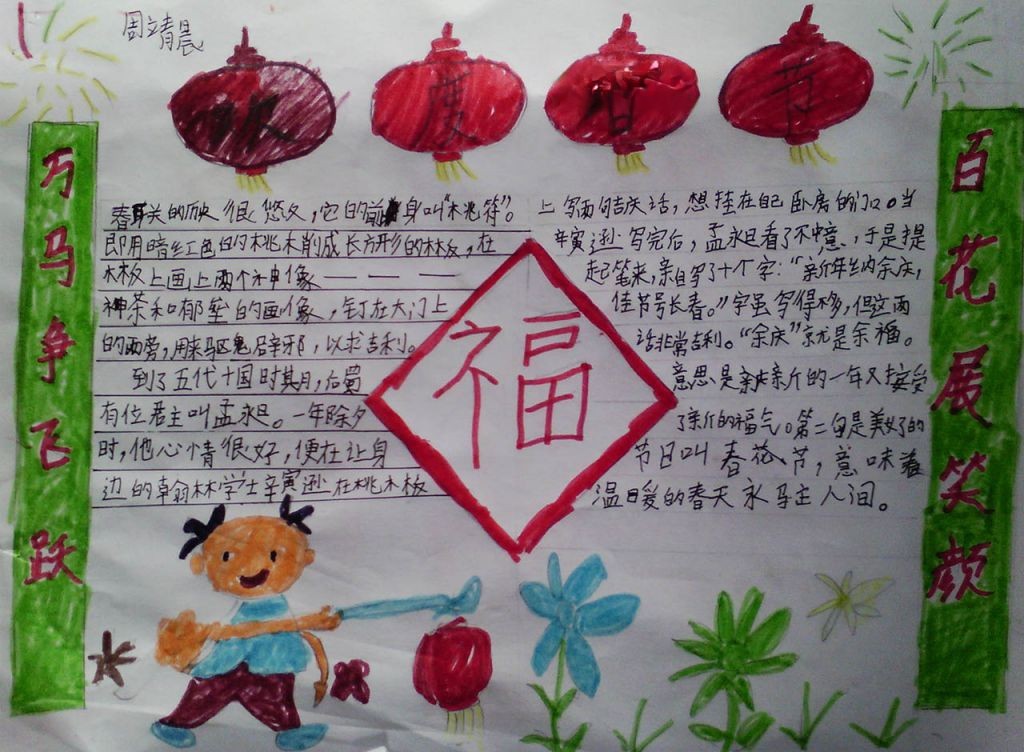 周靖晨
欢度春节
万马争飞跃
百花展笑颜
福
春联的历史很悠久,它的前身叫“桃符”。
即用暗红色的桃木削成长方形的木板,在
木板上画上两个神像————
神荼和郁垒的画像,钉在大门上
的两旁,用来驱鬼辟邪,以求吉利。
到了五代十国时其月,后蜀
有位君主叫孟永旦。一年除夕
时,他心情很好,便在让身
边的翰林学士辛寅逊在桃木板
上写两句吉庆话,想挂在自己卧房的门口。当
辛寅逊写完后,孟永旦看了不中意,于是提
起笔来,亲自写了十个字:“新年纳余庆,
佳节号长春。”字虽写得不多,但这两
话非常吉利。“余庆”就是余福。
意思是新的一年又
了新的福气。第二句是美好的
节日叫春花节,意味着
温暖的春天永驻人间。